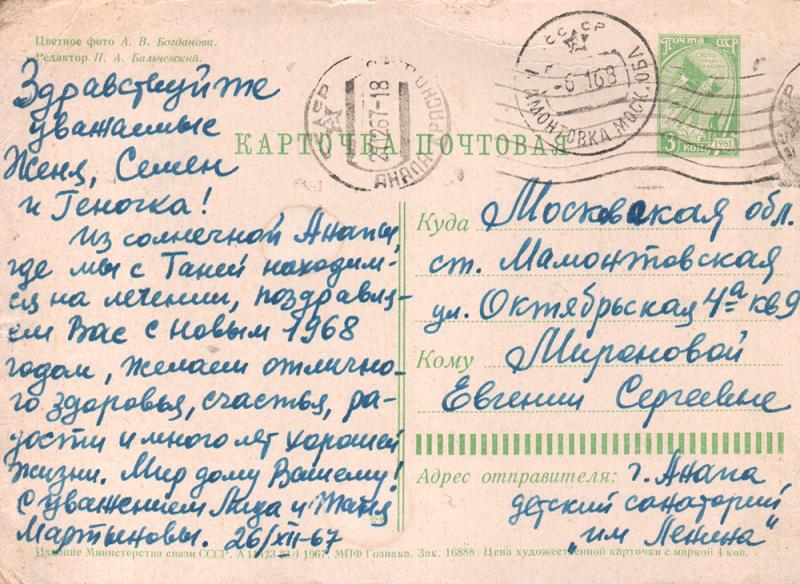 Цветное фото А. В. Богданова.
Редактор П. А. Вальчевский.
Здравствуйте
уважаемые
Женя, Семен
и Геночка!
Из солнечной Анапы,
где мы с Таней находим-
ся на лечении, поздравля-
ем Вас с новым 1968
годом, желаем отлично-
го здоровья, счастья, ра-
дости и много лет хорошей
жизни. Мир дому Вашему!
С уважением Лида и Таня
Мартыновы. 26/XII-67
КАРТОЧКА ПОЧТОВАЯ
ПОЧТА СССР
3 коп. 1961
СССР
АНАПА
67-18
СССР
-6 1 68
МАМОНТОВКА МОСК. ОБЛ.
Куда Московская обл.
ст. Мамонтовская
ул. Октябрьская 4а кв 9
Кому Мироновой
Евгении Сергеевне
Адрес отправителя: г. Анапа
детский санаторий
„им Ленина"
Издание Министерства связи СССР. 1967. МПФ Гознака. Зак. 16888. Цена художественной карточки с маркой 4 коп.